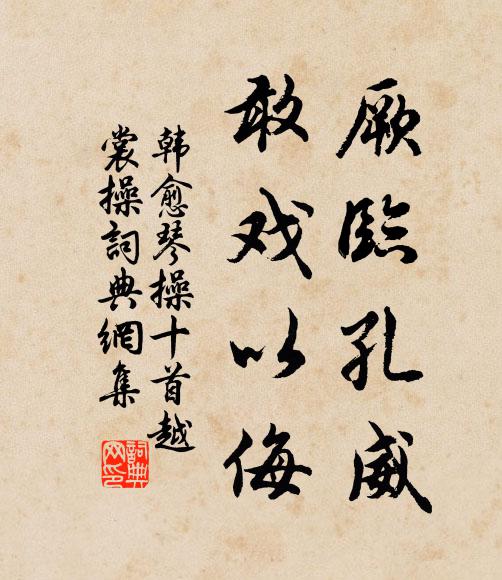 厥臨孔威
敢戏以侮
韩愈琴操十首越
裳操詞典網集
詞典
网印